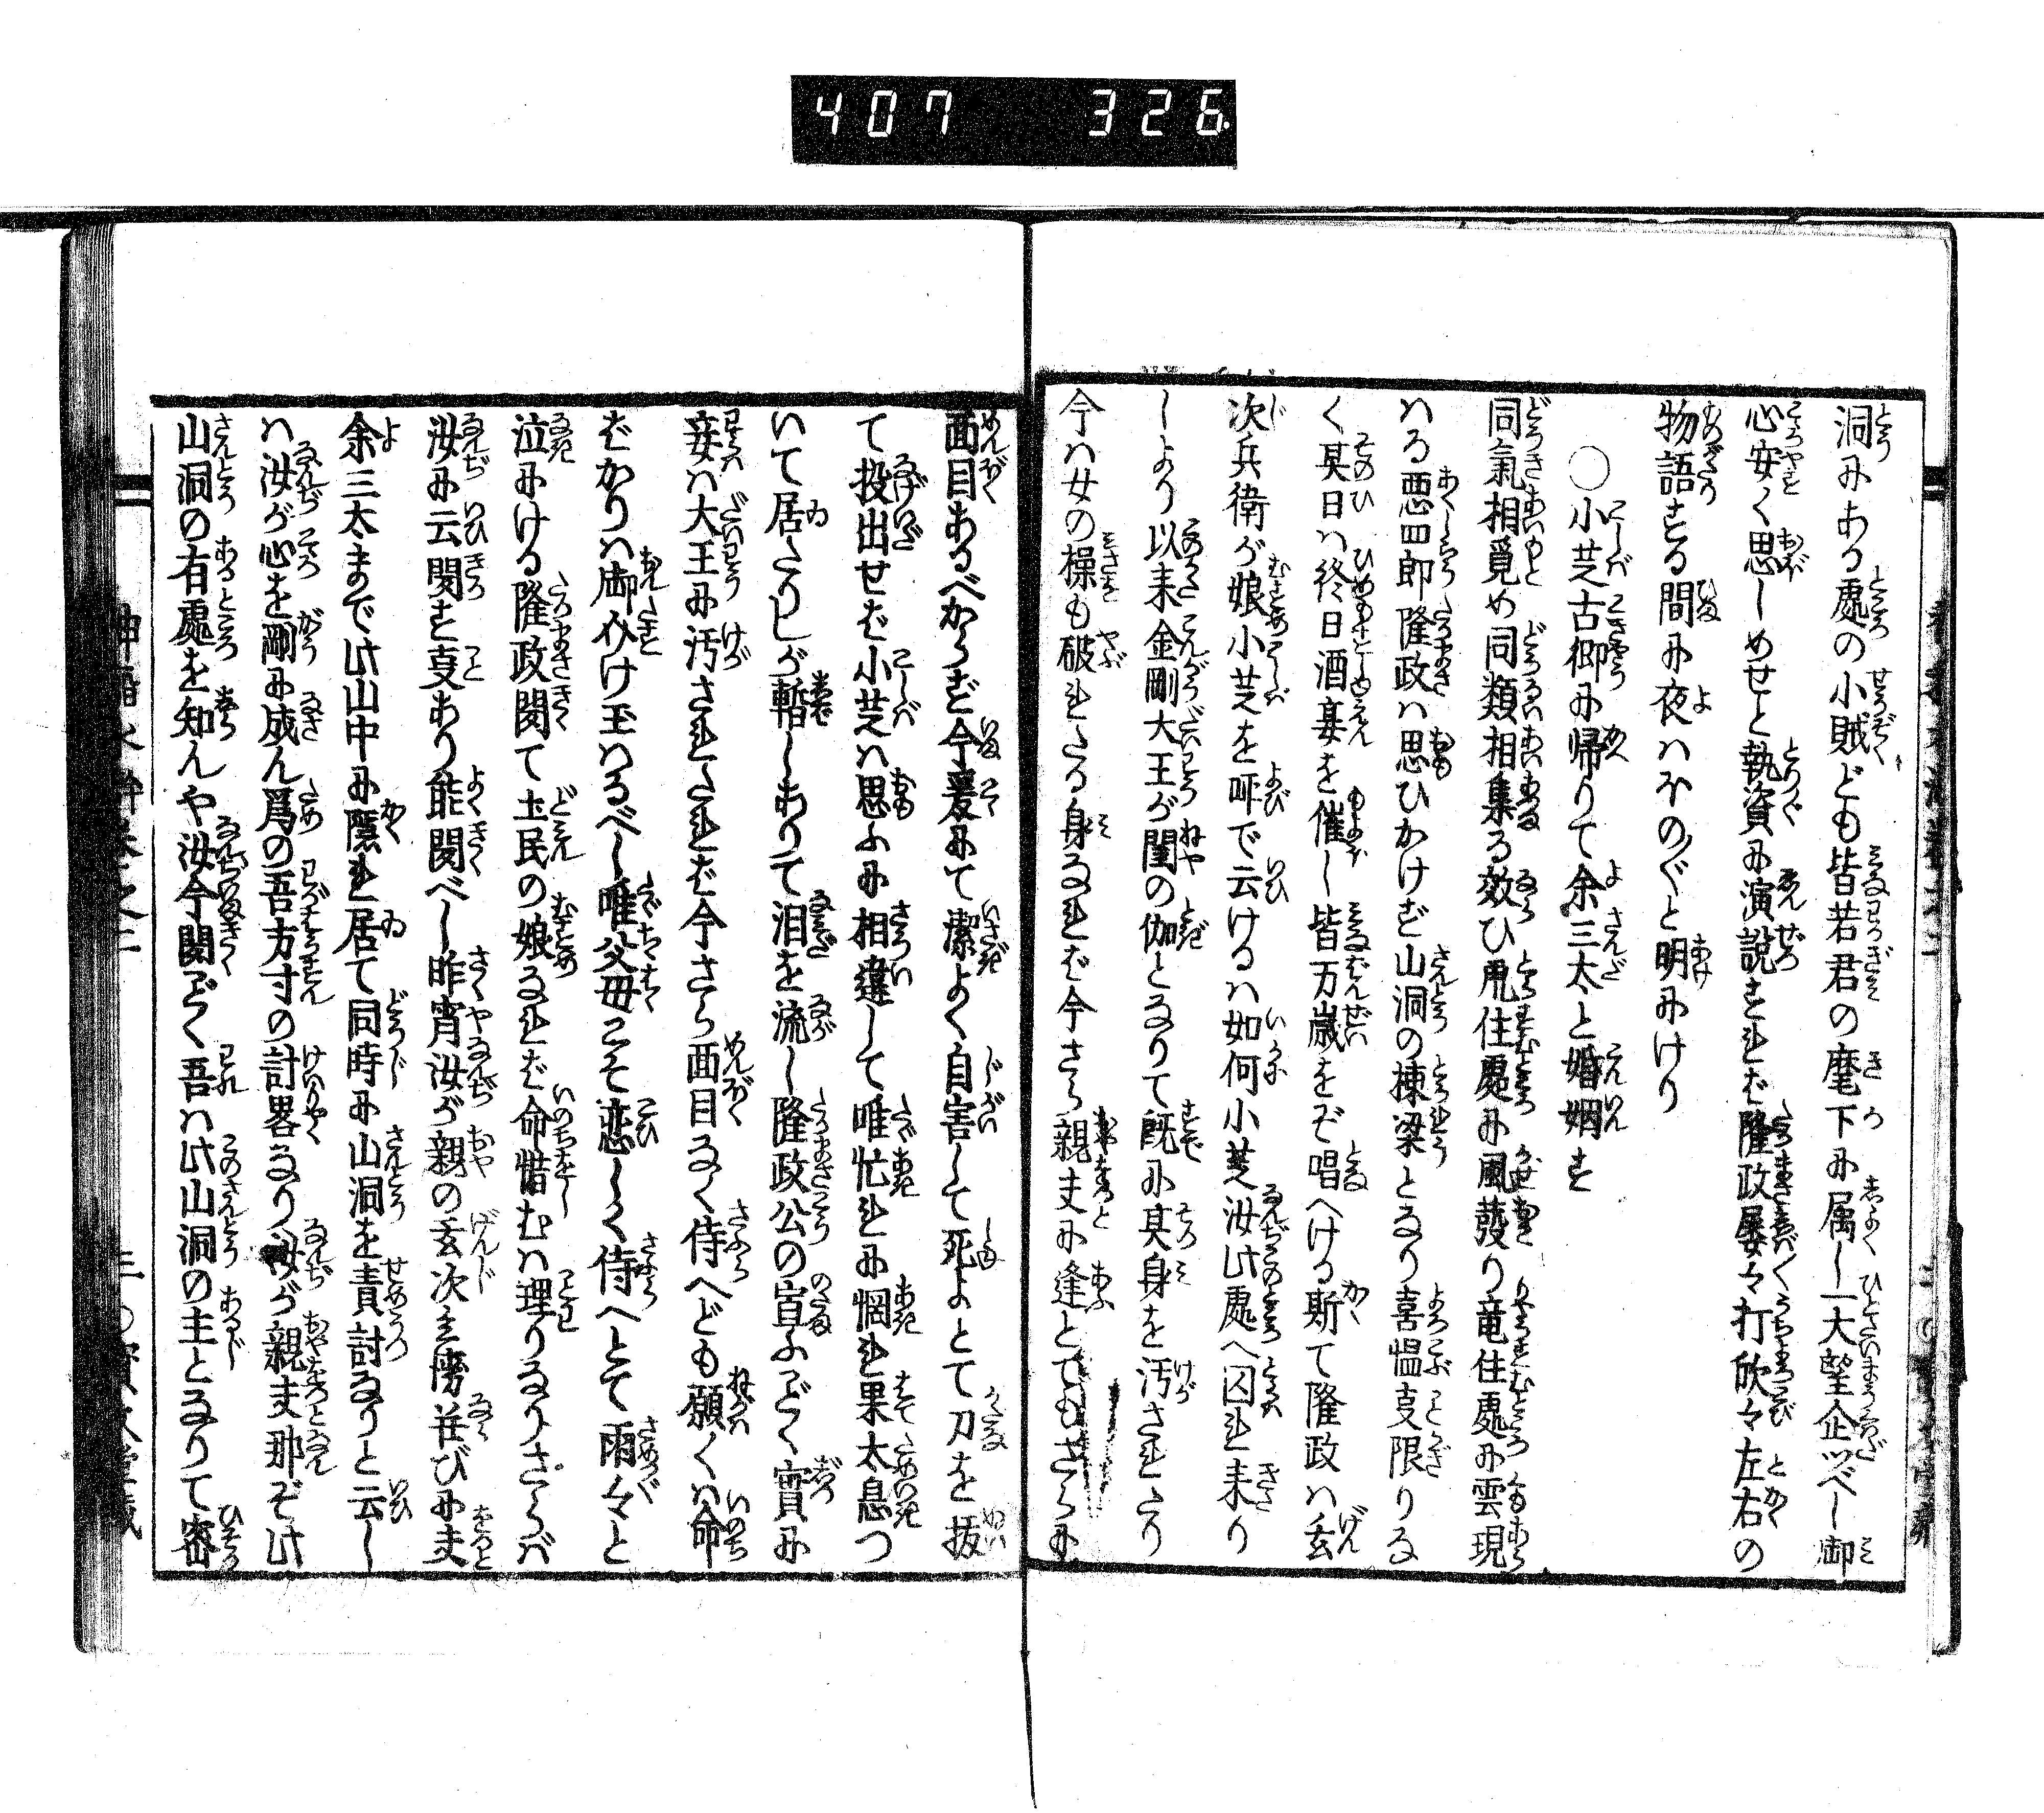 407 326
洞にある處の小賊ども皆若君の麾下に属し一大望企ツべし御
心安く思しめせと執資に演説すれば隆政屡々打欣々左右の
物語する間に夜はほの〴〵と明にけり
○小芝古郷に帰りて余三太と婚姻す
同氣相覓め同類相集る效ひ鳬住處に風發り竜住處に雲現
はる悪四郎隆政は思ひかけず山洞の棟梁となり喜慍叓限りな
く其日は終日酒宴を催し皆万歳をぞ唱へける斯て隆政は玄
次兵衛が娘小芝を呼で云けるは如何小芝汝此處へ囚れ来り
しより以来金剛大王が閨の伽となりて既に其身を汚されたり
今は女の操も破れたる身なれば今さら親夫に逢とてもさらに
面目あるべからず今爰にて潔よく自害して死よとて刀を抜
て投出せば小芝は思ふに相違して唯忙れに惘れ果太息つ
いて居たりしが暫しありて泪を流し隆政公の宣ふごとく實に
妾は大王に汚されたれば今さら面目なく侍へども願くは命
ばかりは御介け玉はるべし唯父母こそ恋しく侍へとて雨々と
泣にける隆政聞て土民の娘なれば命惜むは理りなりさらば
汝に云聞す叓あり能聞べし昨宵汝が親の玄次兵衛并びに夫
余三太まで此山中に隱れ居て同時に山洞を責討なりと云し
は汝が心を剛に成ん爲の吾方寸の計畧なり汝が親夫那ぞ此
山洞の有處を知んや汝今聞ごとく吾は此山洞の主となりて密